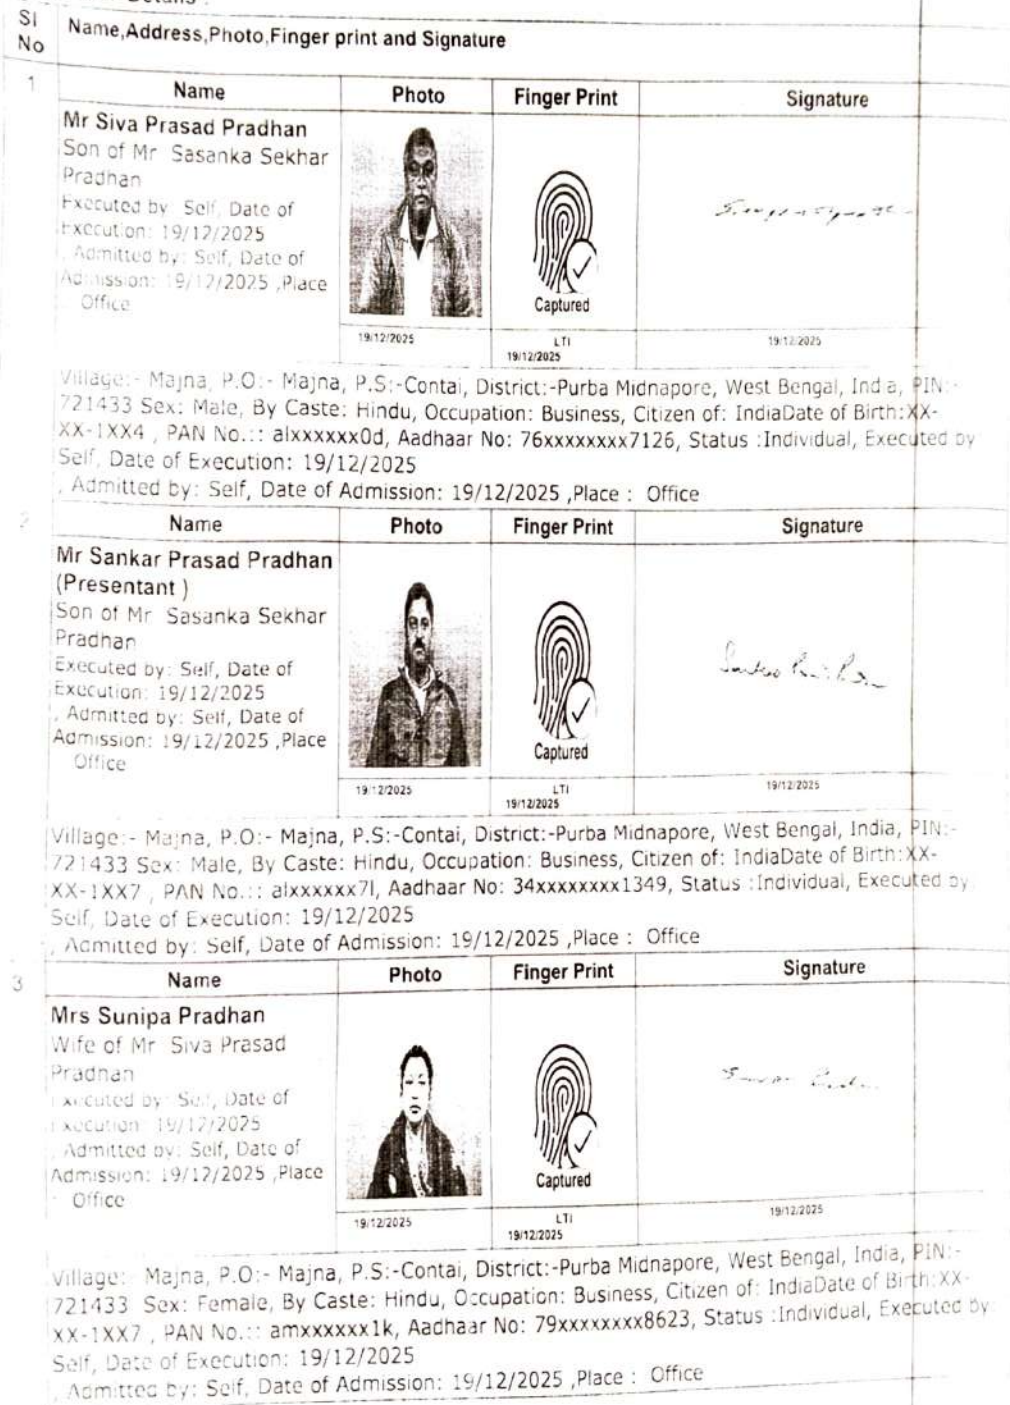 Details :
Sl
No
Name,Address,Photo,Finger print and Signature
1
Name Photo Finger Print Signature
Mr Siva Prasad Pradhan
Son of Mr Sasanka Sekhar
Pradhan
Executed by: Self, Date of
Execution: 19/12/2025
, Admitted by: Self, Date of
Admission: 19/12/2025 ,Place
: Office
Captured
19/12/2025 LTI 19/12/2025
19/12/2025
Village:- Majna, P.O:- Majna, P.S:-Contai, District:-Purba Midnapore, West Bengal, India, PIN:-
721433 Sex: Male, By Caste: Hindu, Occupation: Business, Citizen of: IndiaDate of Birth:XX-
XX-1XX4 , PAN No.:: alxxxxxx0d, Aadhaar No: 76xxxxxxxx7126, Status :Individual, Executed by
Self, Date of Execution: 19/12/2025
, Admitted by: Self, Date of Admission: 19/12/2025 ,Place : Office
2
Name Photo Finger Print Signature
Mr Sankar Prasad Pradhan
(Presentant )
Son of Mr Sasanka Sekhar
Pradhan
Executed by: Self, Date of
Execution: 19/12/2025
, Admitted by: Self, Date of
Admission: 19/12/2025 ,Place
Office
Captured
19/12/2025 LTI 19/12/2025
19/12/2025
Village:- Majna, P.O:- Majna, P.S:-Contai, District:-Purba Midnapore, West Bengal, India, PIN:-
721433 Sex: Male, By Caste: Hindu, Occupation: Business, Citizen of: IndiaDate of Birth:XX-
XX-1XX7 , PAN No.:: alxxxxxx7l, Aadhaar No: 34xxxxxxxx1349, Status :Individual, Executed by
Self, Date of Execution: 19/12/2025
, Admitted by: Self, Date of Admission: 19/12/2025 ,Place : Office
3
Name Photo Finger Print Signature
Mrs Sunipa Pradhan
Wife of Mr Siva Prasad
Pradhan
Executed by: Self, Date of
Execution: 19/12/2025
, Admitted by: Self, Date of
Admission: 19/12/2025 ,Place
: Office
Captured
19/12/2025 LTI 19/12/2025
19/12/2025
Village:- Majna, P.O:- Majna, P.S:-Contai, District:-Purba Midnapore, West Bengal, India, PIN:-
721433 Sex: Female, By Caste: Hindu, Occupation: Business, Citizen of: IndiaDate of Birth:XX-
XX-1XX7 , PAN No.:: amxxxxxx1k, Aadhaar No: 79xxxxxxxx8623, Status :Individual, Executed by
Self, Date of Execution: 19/12/2025
, Admitted by: Self, Date of Admission: 19/12/2025 ,Place : Office